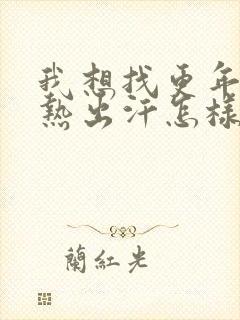 我想找更年
熱出汗怎樣
蘭紅光